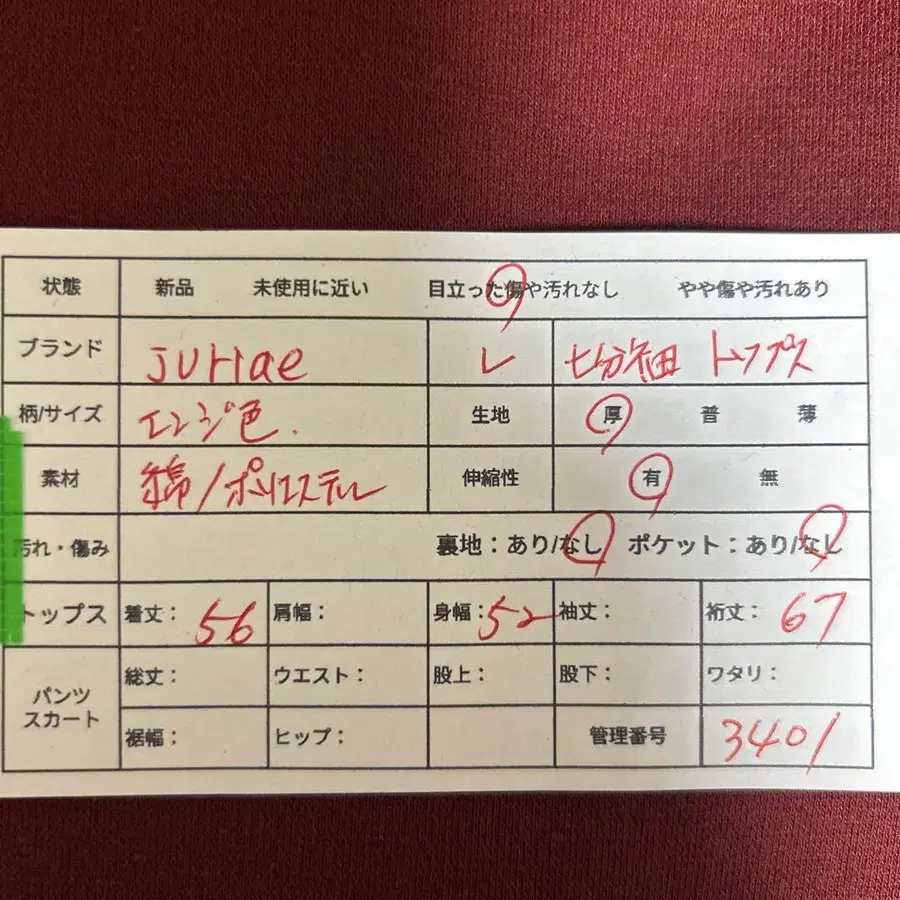 状態 新品 未使用に近い 目立った傷や汚れなし やや傷や汚れあり
ブランド Juriae L 七分袖 トップス
柄/サイズ エンジ色. 生地 厚 普 薄
素材 綿/ポリエステル 伸縮性 有 無
汚れ・傷み 裏地:あり/なし ポケット:あり/なし
トップス 着丈: 56 肩幅: 身幅:52 袖丈: 裄丈: 67
パンツ スカート 総丈: ウエスト: 股上: 股下: ワタリ:
裾幅: ヒップ: 管理番号 3401